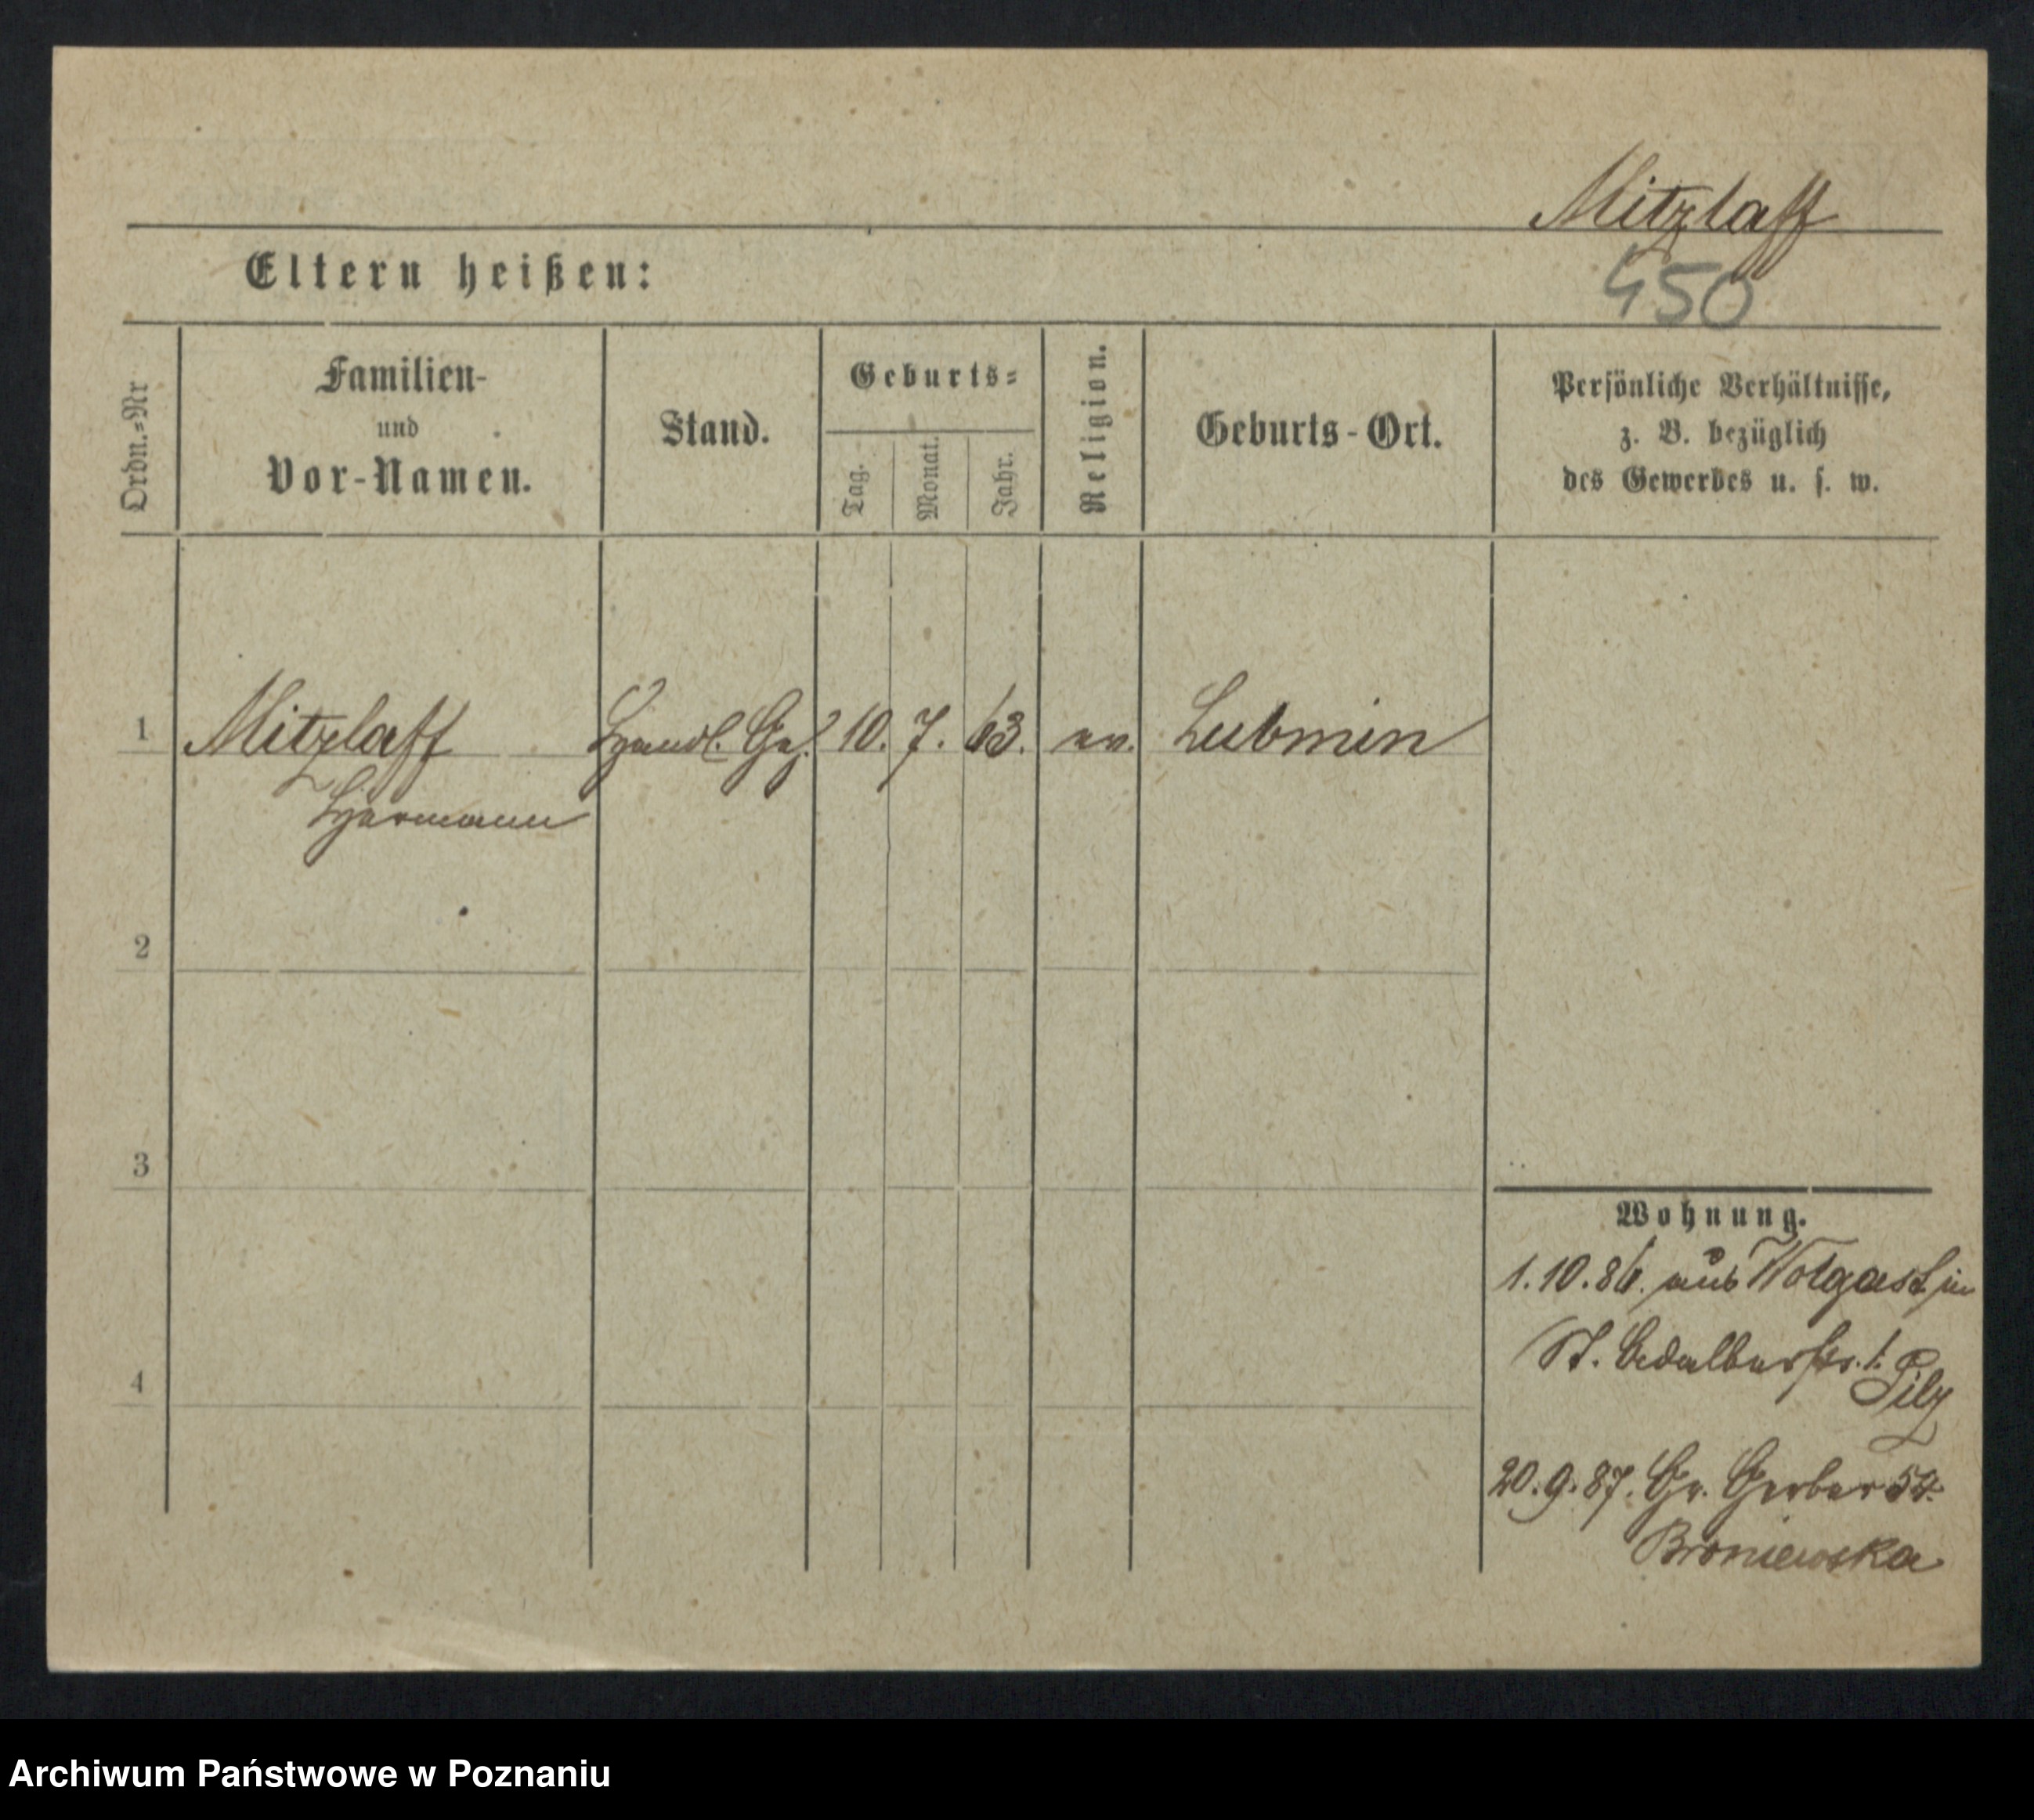 Mitzlaff
450
Eltern heißen:
Ordn.-Nr
Familien-
und
Vor-Namen.
Stand.
Geburts-
Tag.
Monat.
Jahr.
Religion.
Geburts-Ort.
Persönliche Verhältnisse,
z. B. bezüglich
des Gewerbes u. s. w.
1 Mitzlaff Handl. Geh. 10. 7. 63. ev. Lubmin
Hermann
2
3
4
Wohnung.
1.10.86. aus Wolgast in
St. Adalbertstr. 1.
Pilz
20.9.87. Gr. Gerber 54.
Broniewska
Archiwum Państwowe w Poznaniu